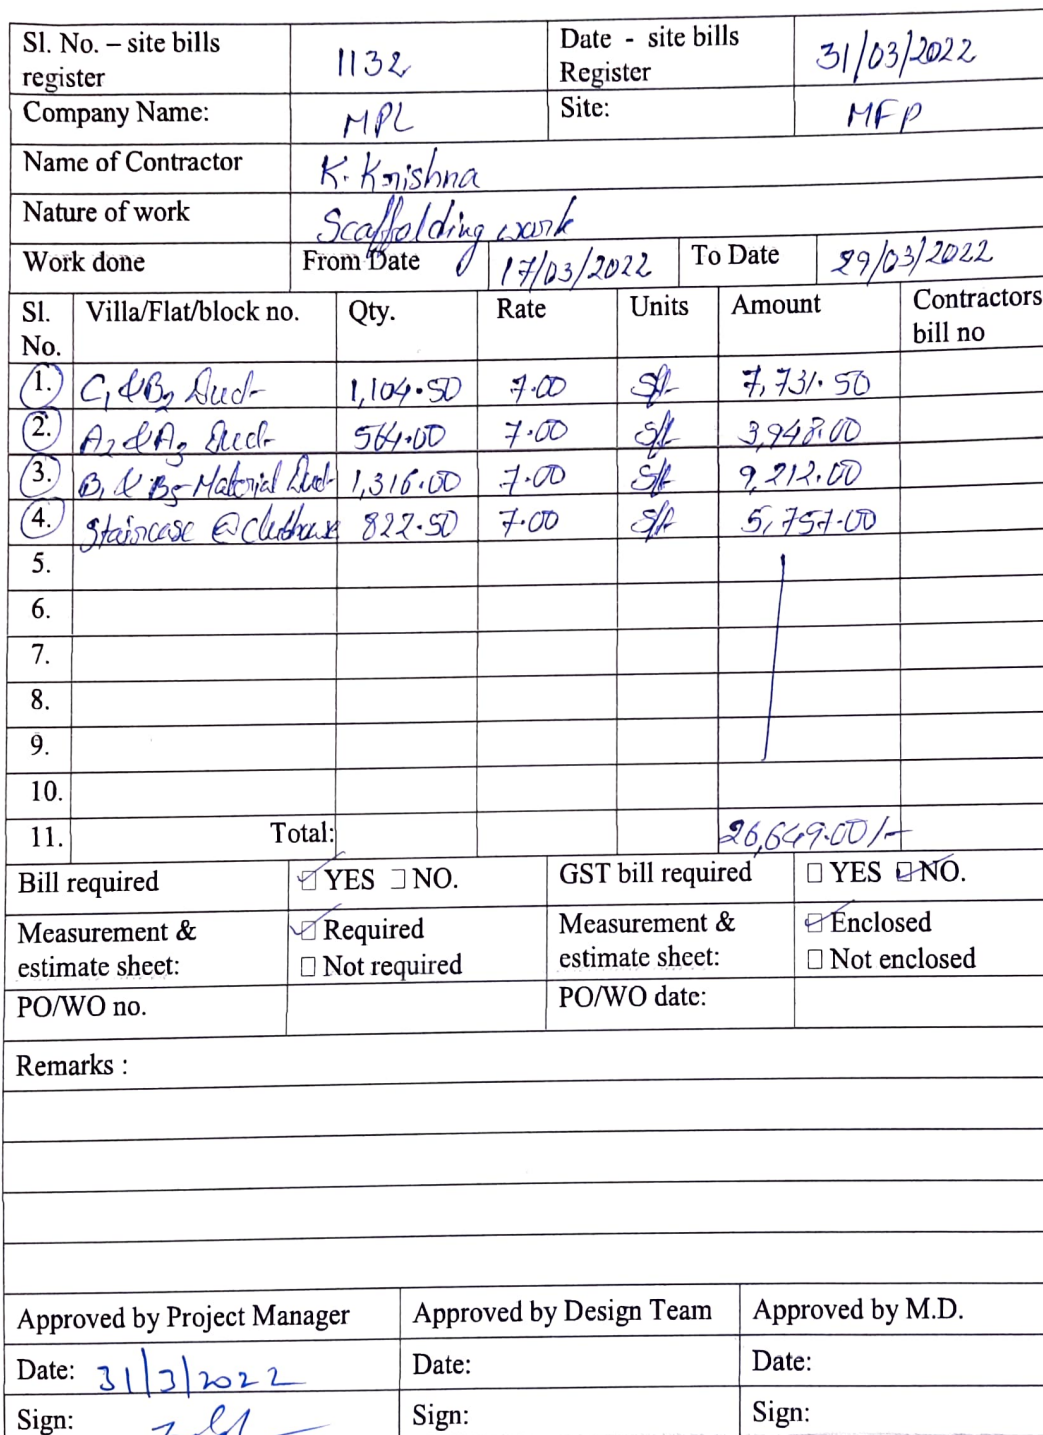 Sl. No. – site bills register 1132 Date - site bills Register 31/03/2022
Company Name: MPL Site: MFP
Name of Contractor K. Krishna
Nature of work Scaffolding work
Work done From Date 17/03/2022 To Date 29/03/2022
Sl. No. Villa/Flat/block no. Qty. Rate Units Amount Contractors bill no
1. C1 & B2 Duct 1,104.50 7.00 Sft 7,731.50
2. A2 & A3 Duct 564.00 7.00 Sft 3,948.00
3. B1 & B5-Material Duct 1,316.00 7.00 Sft 9,212.00
4. Staircase @ Clubhouse 822.50 7.00 Sft 5,757.00
5.
6.
7.
8.
9.
10.
11. Total: 26,649.00/-
Bill required YES NO. GST bill required YES NO.
Measurement & estimate sheet: Required Not required Measurement & estimate sheet: Enclosed Not enclosed
PO/WO no. PO/WO date:
Remarks :
Approved by Project Manager Approved by Design Team Approved by M.D.
Date: 31/3/2022 Date: Date:
Sign: Sign: Sign: